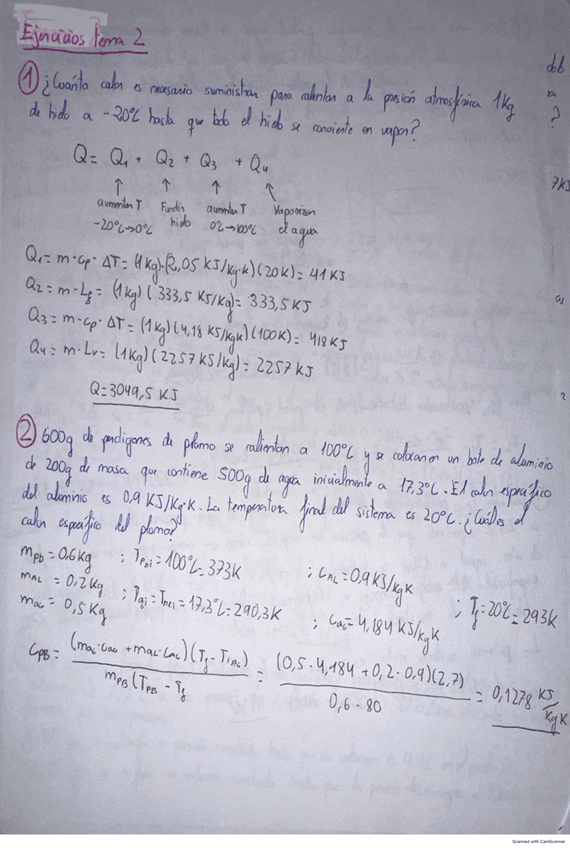 Ejercicios Tema 2
① ¿Cuánto calor es necesario suministrar para calentar a la presión atmosférica 1kg
de hielo a -20ºC hasta que todo el hielo se convierte en vapor?
Q = Q1 + Q2 + Q3 + Q4
↑ ↑ ↑ ↑
aumentar T Fundir aumentar T Vaporizar
-20ºC→0ºC hielo 0ºC→100ºC el agua
Q1 = m·cp·ΔT = (1Kg)·(2,05 KJ/kg·k)(20K) = 41 KJ
Q2 = m·Lf = (1Kg)(333,5 KJ/Kg) = 333,5KJ
Q3 = m·cp·ΔT = (1Kg)(4,18 KJ/kgK)(100K) = 418 KJ
Q4 = m·Lv = (1Kg)(2257 KJ/Kg) = 2257 KJ
Q = 3049,5 KJ
② 600g de perdigones de plomo se calientan a 100ºC y se colocan en un bote de aluminio
de 200g de masa que contiene 500g de agua inicialmente a 17,3ºC. El calor específico
del aluminio es 0,9 KJ/Kg·K. La temperatura final del sistema es 20ºC. ¿Cuál es el
calor específico del plomo?
mPb = 0,6Kg ; TPbi = 100ºC = 373K ; CAL = 0,9KJ/kgK
mAL = 0,2Kg ; Tai = TAli = 17,3ºC = 290,3K ; Cag = 4,184 KJ/kgK ; Tf = 20ºC = 293K
mag = 0,5Kg
CPB = (mag·cag + mAL·CAL)(Tf - TiAL) / mPB(TPB - Tf = (0,5·4,184 + 0,2·0,9)(2,7) / 0,6·80 = 0,1278 KJ/KgK
dol
?
7KJ
Scanned with CamScanner